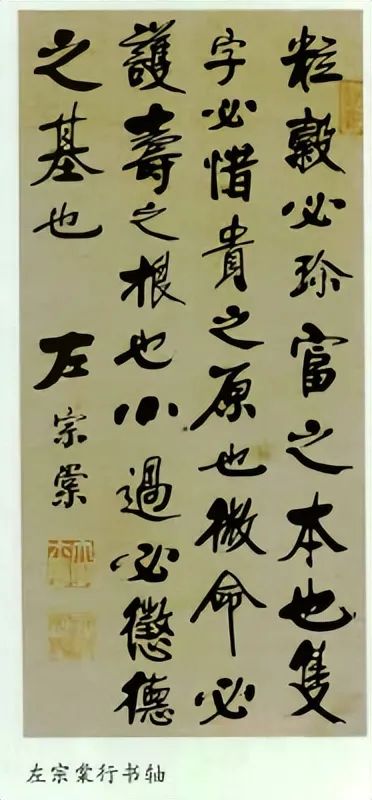 粒穀必珍富之本也隻
字必惜貴之原也微命必
護壽之根也小過必懲德
之基也
左宗棠
左宗棠行书轴